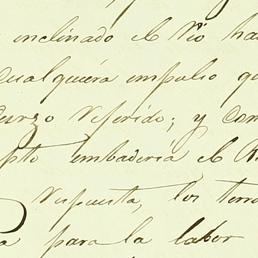 inclinado el Rio ha
cualquiera impulso qu
curso referido; y com
pto embaderia el R
respuesta, los terr
a para la labor